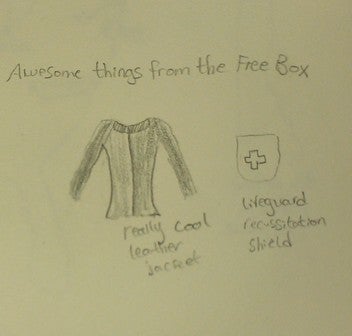 Awesome things from the Free Box
really cool
leather
jacket
lifeguard
recussitation
shield